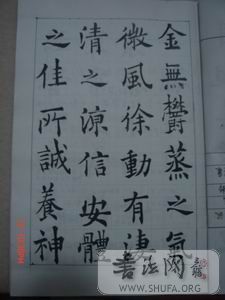 金無鬱蒸之氣
微風徐動有淒
清之涼信安體
之佳所誠養神
書法网
WWW.SHUFA.ORG